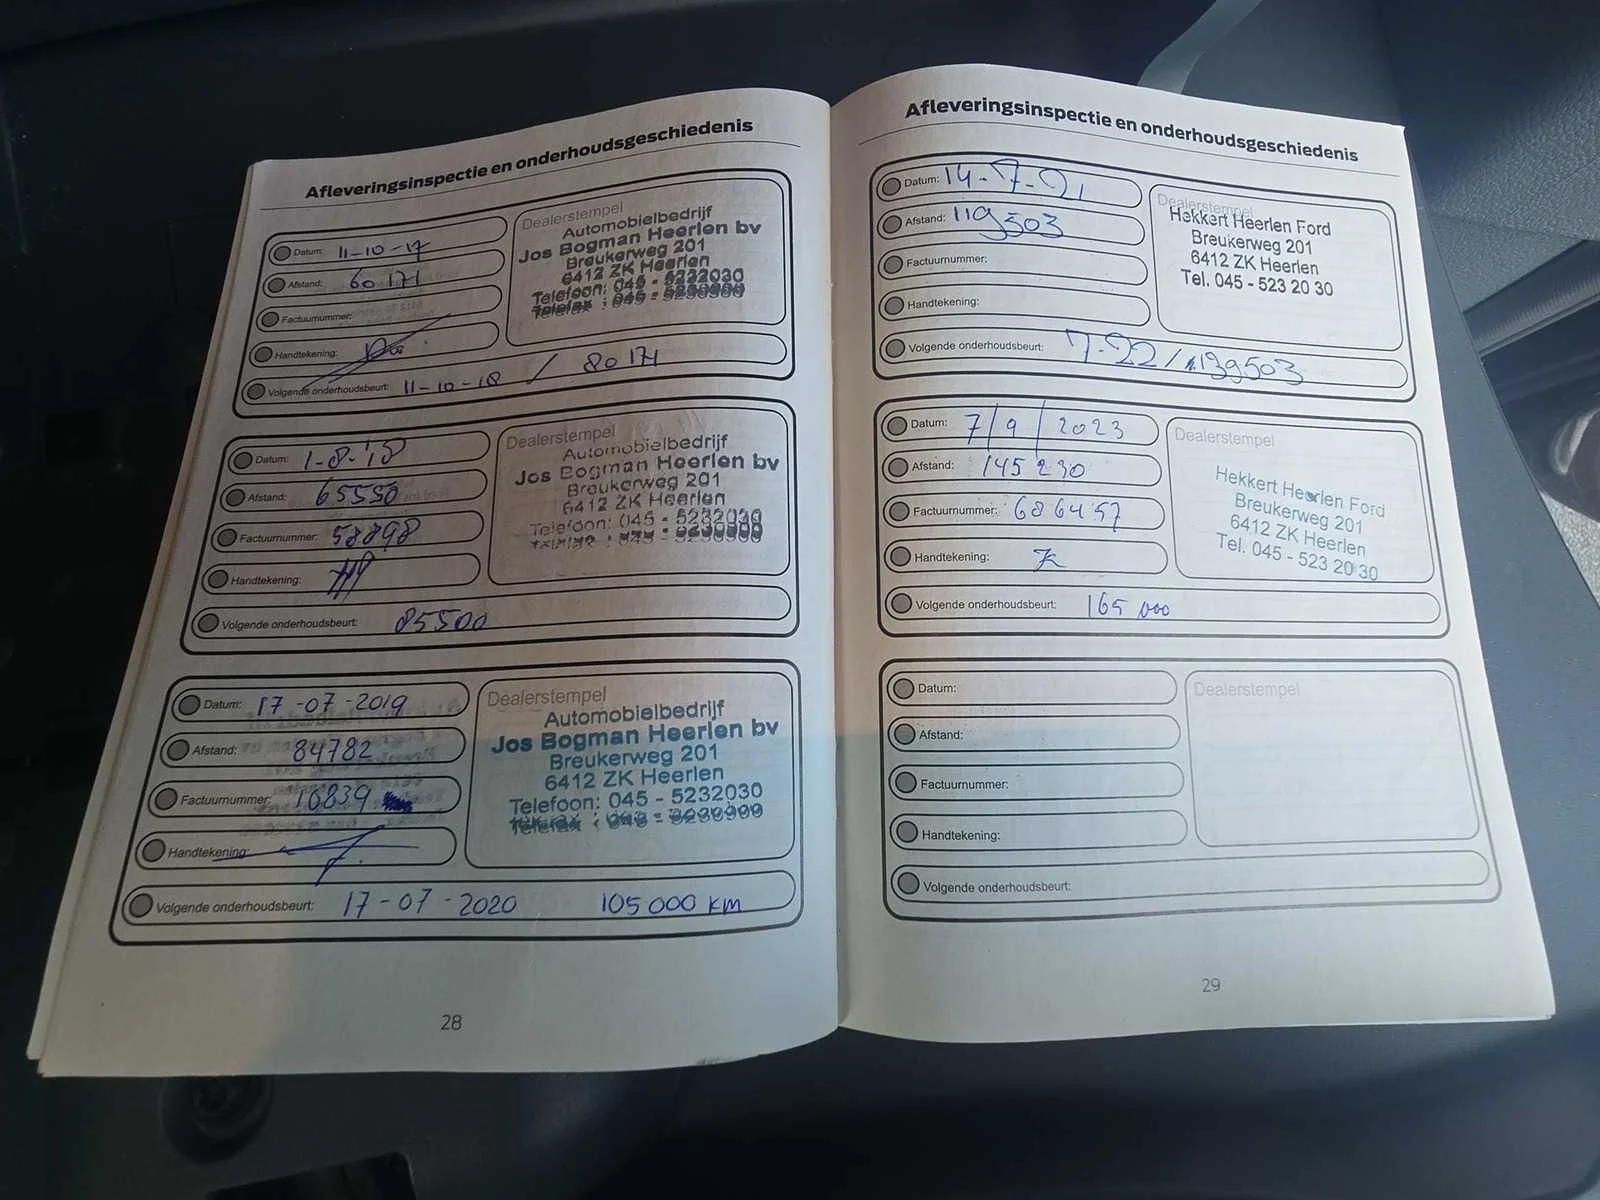 Afleveringsinspectie en onderhoudsgeschiedenis
Datum: 11-10-17
Afstand: 60171
Factuurnummer:
Handtekening:
Volgende onderhoudsbeurt: 11-10-18 / 80171
Dealerstempel
Automobielbedrijf
Jos Bogman Heerlen bv
Breukerweg 201
6412 ZK Heerlen
Telefoon: 045 - 5232030
Telefax : 045 - 5230909
Datum: 1-8-'18
Afstand: 65550
Factuurnummer: 58898
Handtekening:
Volgende onderhoudsbeurt: 85500
Dealerstempel
Automobielbedrijf
Jos Bogman Heerlen bv
Breukerweg 201
6412 ZK Heerlen
Telefoon: 045 - 5232030
Datum: 17-07-2019
Afstand: 84782
Factuurnummer: 10839
Handtekening:
Volgende onderhoudsbeurt: 17-07-2020 105000 km
Dealerstempel
Automobielbedrijf
Jos Bogman Heerlen bv
Breukerweg 201
6412 ZK Heerlen
Telefoon: 045 - 5232030
Telefax : 045 - 5230909
28
Afleveringsinspectie en onderhoudsgeschiedenis
Datum: 14-7-21
Afstand: 119503
Factuurnummer:
Handtekening:
Volgende onderhoudsbeurt: 7-22/139503
Dealerstempel
Hekkert Heerlen Ford
Breukerweg 201
6412 ZK Heerlen
Tel. 045 - 523 20 30
Datum: 7/9/2023
Afstand: 145230
Factuurnummer: 686457
Handtekening:
Volgende onderhoudsbeurt: 165 000
Dealerstempel
Hekkert Heerlen Ford
Breukerweg 201
6412 ZK Heerlen
Tel. 045 - 523 20 30
Datum:
Afstand:
Factuurnummer:
Handtekening:
Volgende onderhoudsbeurt:
Dealerstempel
29